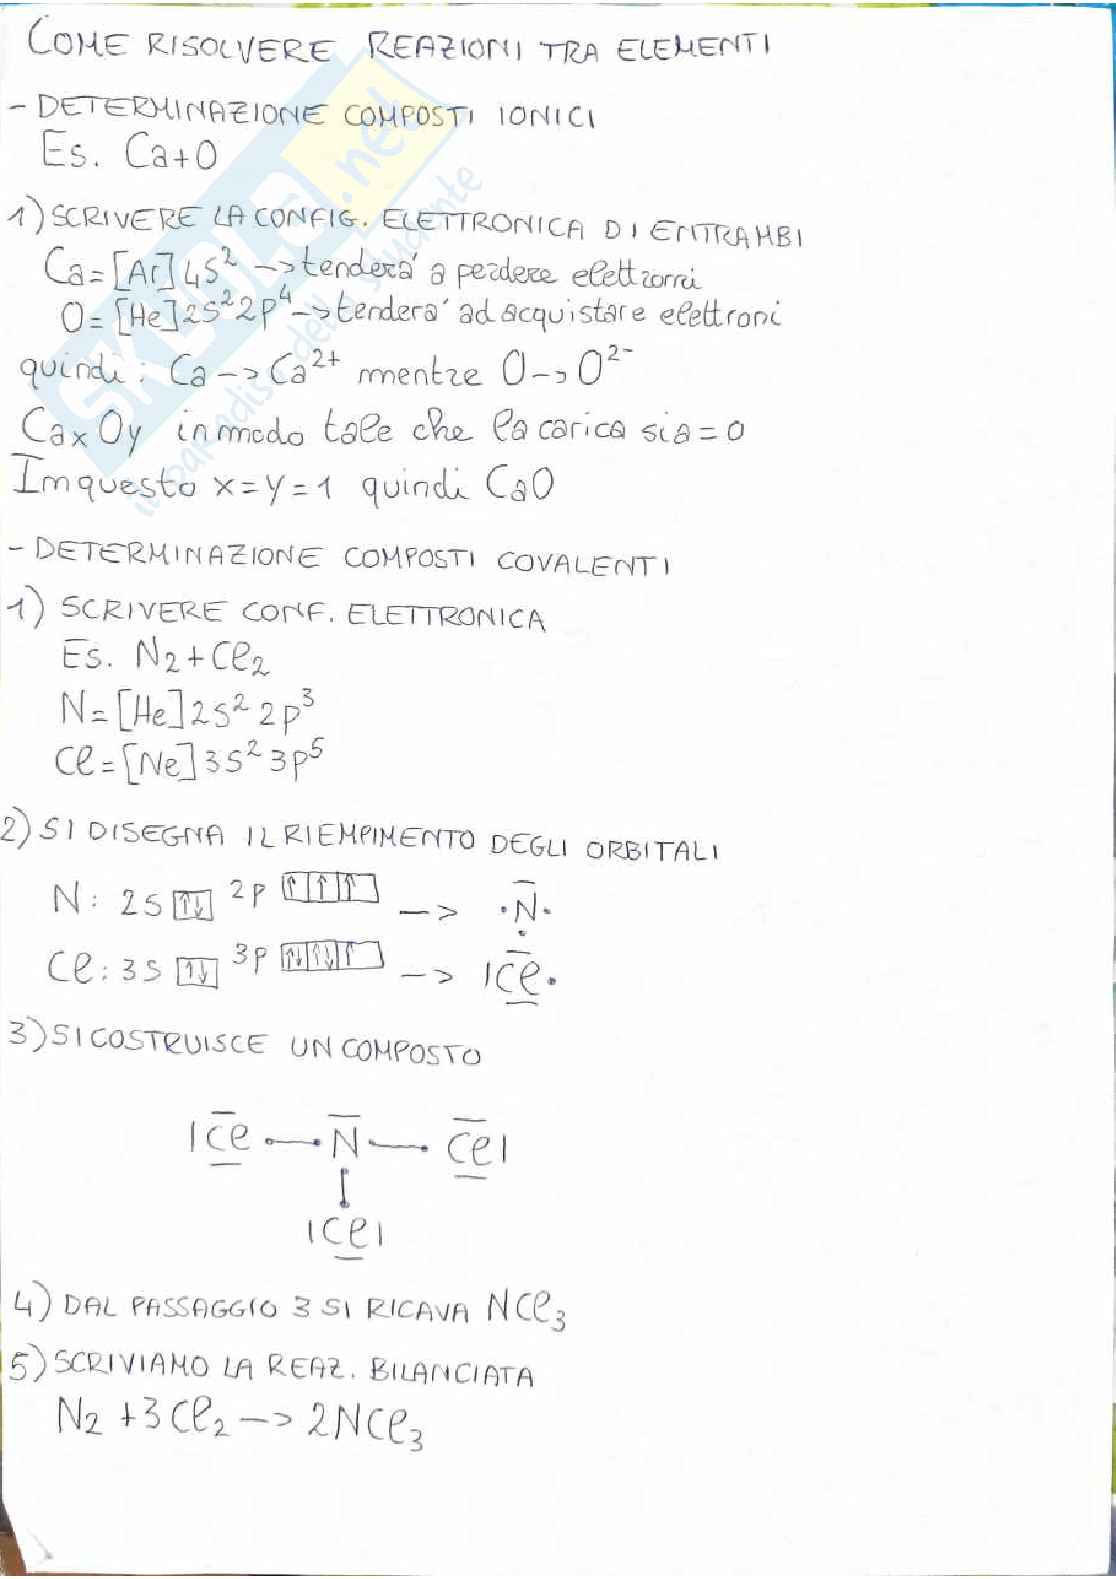 COME RISOLVERE REAZIONI TRA ELEMENTI
- DETERMINAZIONE COMPOSTI IONICI
Es. Ca+O
1) SCRIVERE LA CONFIG. ELETTRONICA DI ENTRAMBI
Ca=[Ar]4s² -> tenderá a perdere elettroni
O=[He]2s²2p⁴ -> tenderá ad acquistare elettroni
quindi: Ca -> Ca²⁺ mentre O -> O²⁻
CaxOy in modo tale che la carica sia=0
In questo x=y=1 quindi CaO
- DETERMINAZIONE COMPOSTI COVALENTI
1) SCRIVERE CONF. ELETTRONICA
Es. N₂+Cl₂
N=[He]2s²2p³
Cl=[Ne]3s²3p⁵
2) SI DISEGNA IL RIEMPIMENTO DEGLI ORBITALI
N: 2S ↑↓ 2p ↑ ↑ ↑ -> ·N·
Cl: 3S ↑↓ 3p ↑↓ ↑↓ ↑ -> |Cl·
3) SI COSTRUISCE UN COMPOSTO
|Cl — N — Cl|
|Cl|
4) DAL PASSAGGIO 3 SI RICAVA NCl₃
5) SCRIVIAMO LA REAZ. BILANCIATA
N₂ +3Cl₂ -> 2NCl₃
SKUOLA.net
il paradiso dello studente